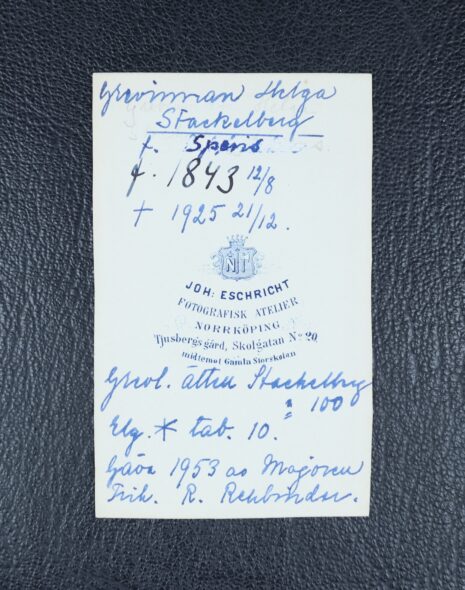 Grevinnan Helga
Stackelberg
f. Spens
f. 1843 12/8
+ 1925 21/12.
JOH: ESCHRICHT
FOTOGRAFISK ATELIER
NORRKÖPING
Tjusbergs gård, Skolgatan No 20
midtemot Gamla Storskolan
Grevl. ätten Stackelberg
100
Elg. * tab. 10.
Gåva 1953 av Majoren
Frih. R. Rehbinder.